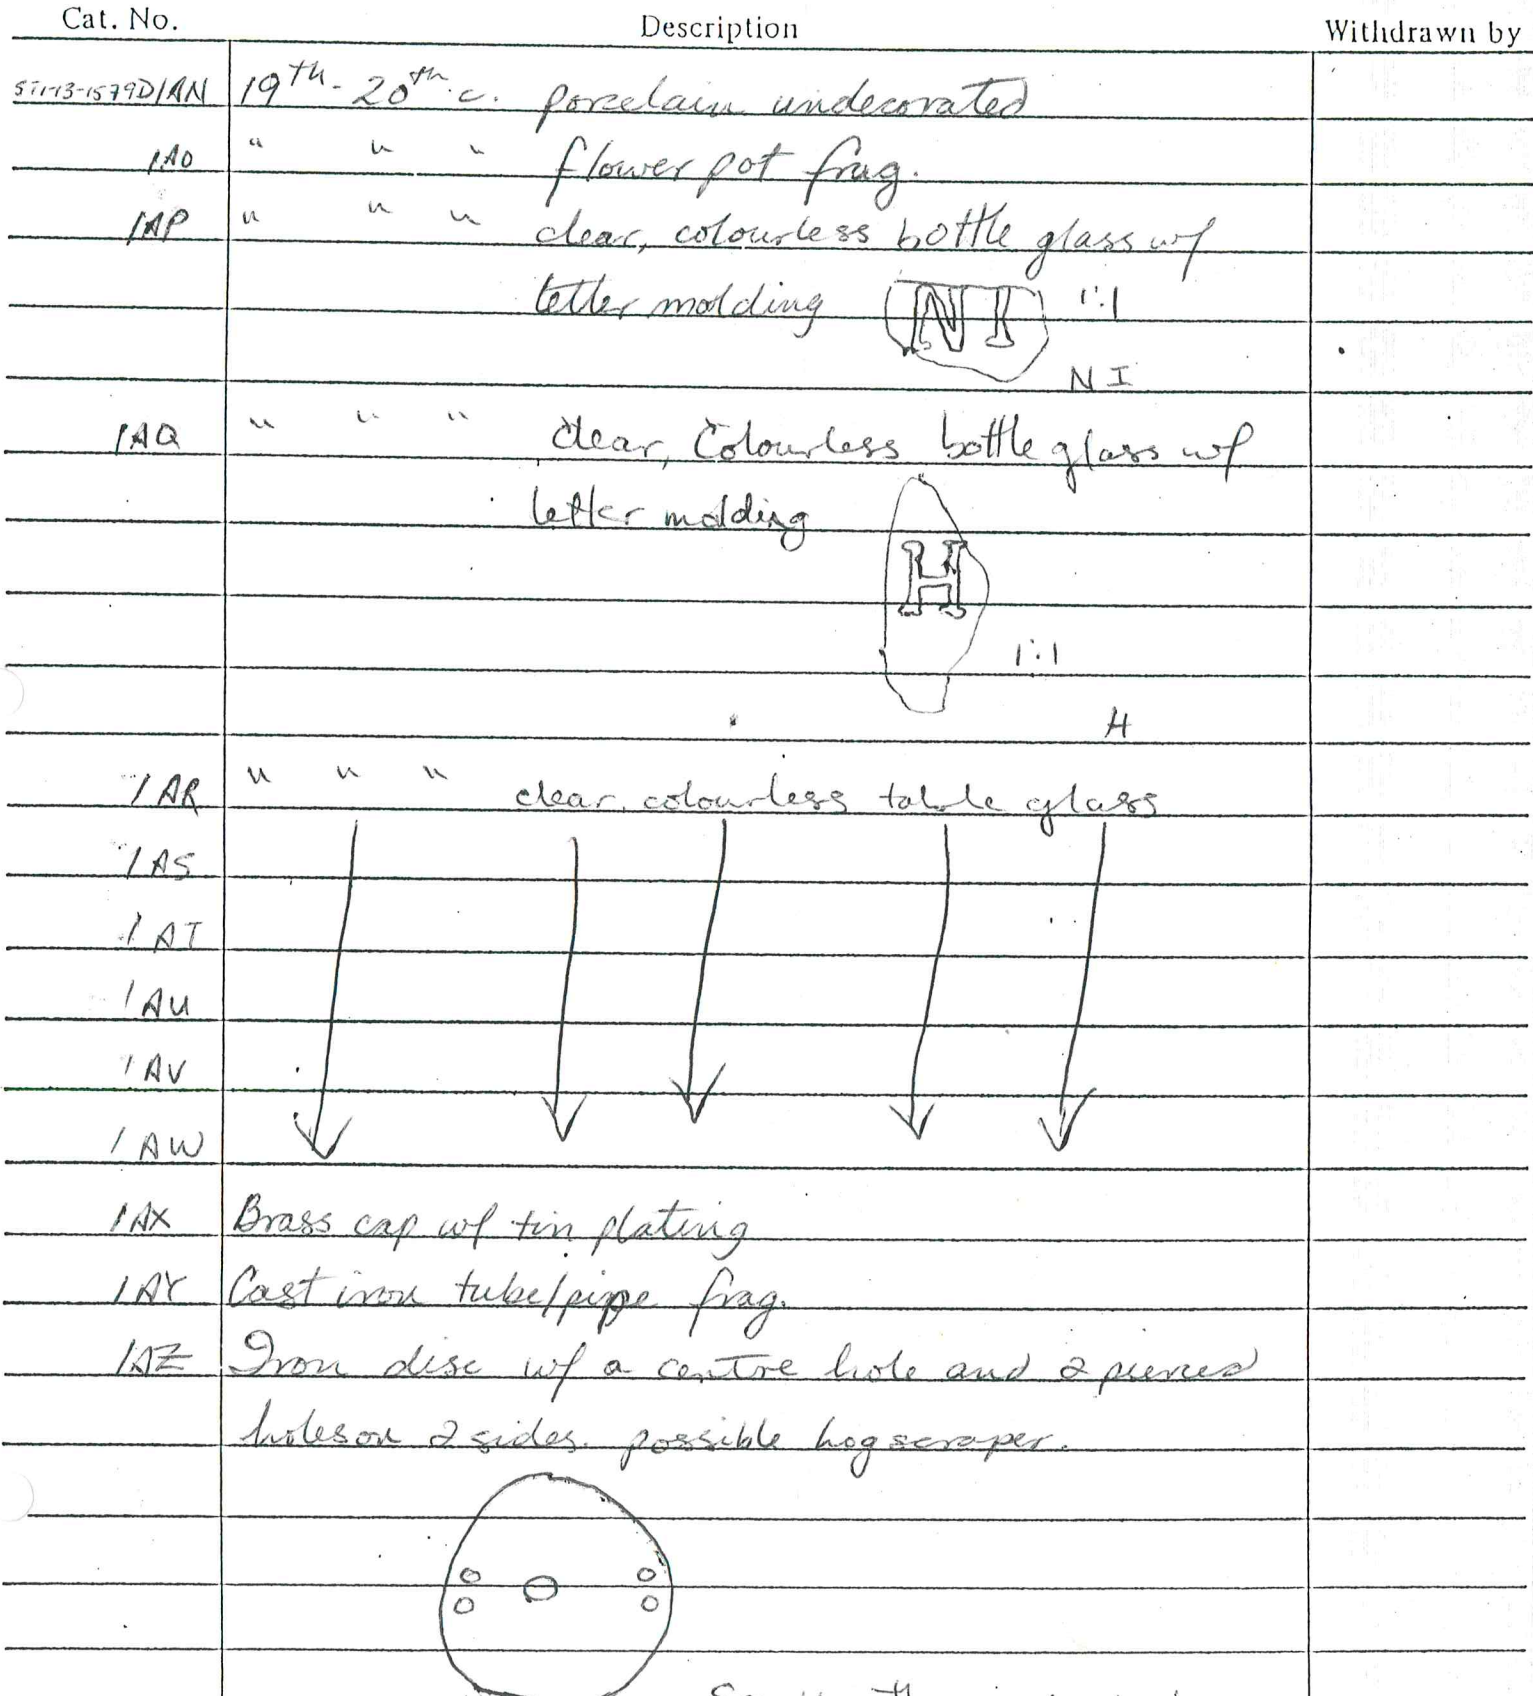 Cat. No. Description Withdrawn by
19th - 20th c. porcelain undecorated
1AO " " " flower pot frag.
1AP " " " clear, colourless bottle glass w/
letter molding NI 1:1
NI
1AQ " " " clear, Colourless bottle glass w/
letter molding
H
1:1
H
1AR " " " clear, colourless table glass
1AS
1AT
1AU
1AV
1AW
1AX Brass cap w/ tin plating
1AY Cast iron tube/pipe frag.
1AZ Iron disc w/ a centre hole and 2 pierced
holes on 2 sides. possible hog scraper.